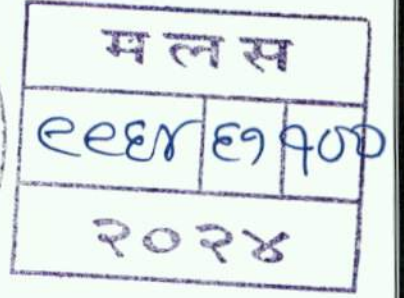 मलस
९९६४ ६१ १००
२०२४